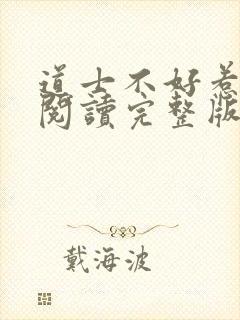 道士不好惹
閱讀完整版
戴海波